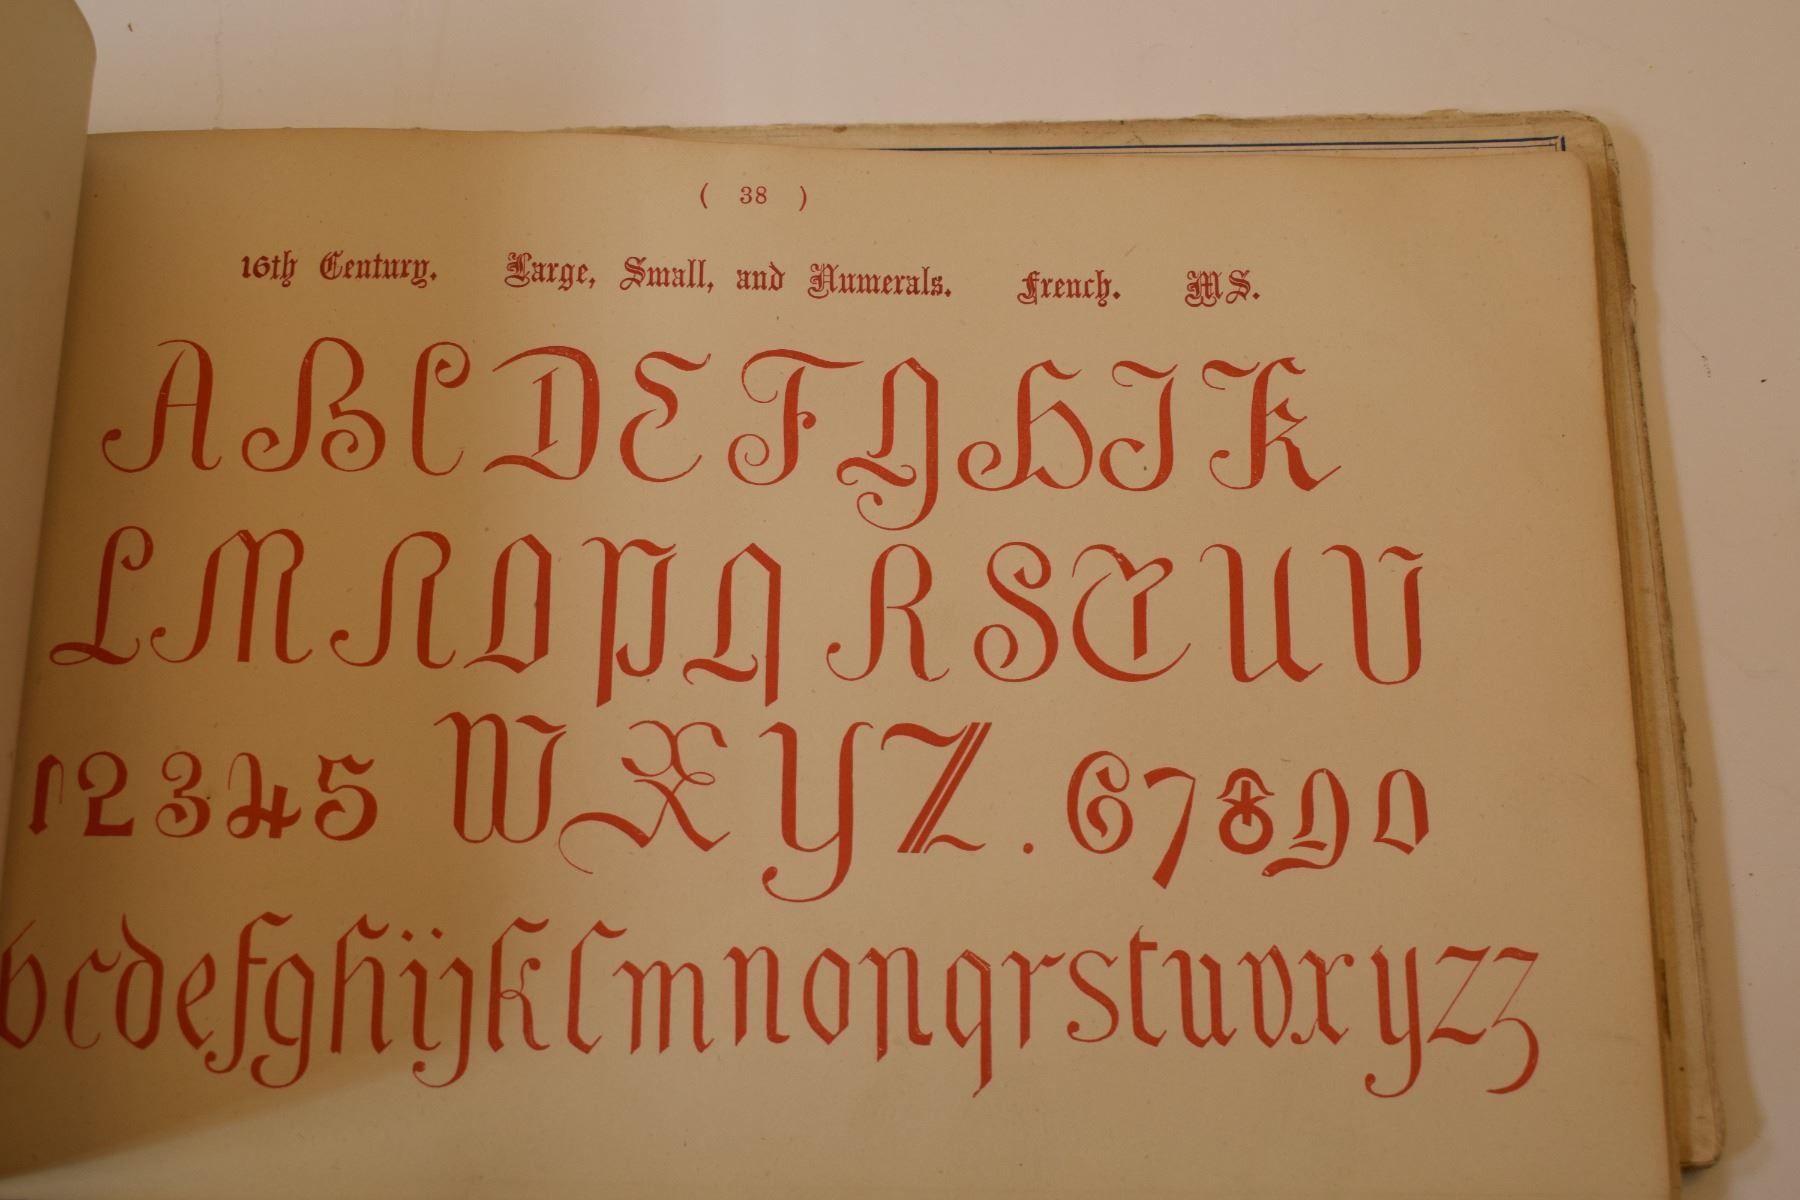 ( 38 )
16th Century. Large, Small, and Numerals. French. MS.
A B C D E F G H I K
L M N O P Q R S T U V
1 2 3 4 5 W X Y Z . 6 7 8 9 0
b c d e f g h i j k l m n o p q r s t u v x y z z